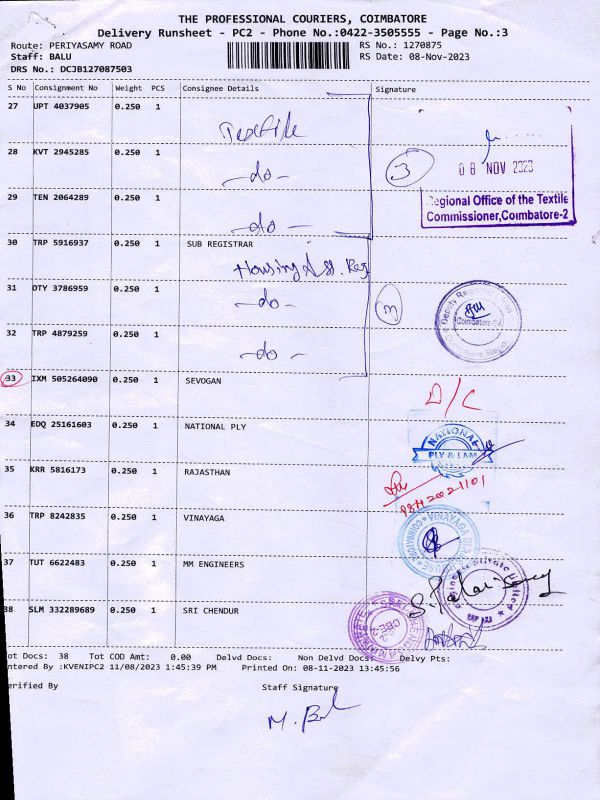 THE PROFESSIONAL COURIERS, COIMBATORE
Delivery Runsheet - PC2 - Phone No.:0422-3505555 - Page No.:3
Route: PERIYASAMY ROAD
Staff: BALU
DRS No.: DCJB127087503
RS No.: 1270875
RS Date: 08-Nov-2023
S No Consignment No Weight PCS Consignee Details Signature
27 UPT 4037905 0.250 1
Textile
28 KVT 2945285 0.250 1
-do-
3
08 NOV 2023
29 TEN 2064289 0.250 1
-do-
Regional Office of the Textile
Commissioner,Coimbatore-2
30 TRP 5916937 0.250 1 SUB REGISTRAR
Housing
31 OTY 3786959 0.250 1
-do-
3
Coimbatore
32 TRP 4879259 0.250 1
-do-
33 IXM 505264090 0.250 1 SEVOGAN
D/C
34 EDQ 25161603 0.250 1 NATIONAL PLY
NATIONAL
PLY & LAM
35 KRR 5816173 0.250 1 RAJASTHAN
36 TRP 8242835 0.250 1 VINAYAGA
VINAYAGA
37 TUT 6622483 0.250 1 MM ENGINEERS
38 SLM 332289689 0.250 1 SRI CHENDUR
CBE-2
ot Docs: 38 Tot COD Amt: 0.00 Delvd Docs: Non Delvd Docs: Delvy Pts:
ntered By :KVENIPC2 11/08/2023 1:45:39 PM Printed On: 08-11-2023 13:45:56
erified By Staff Signature